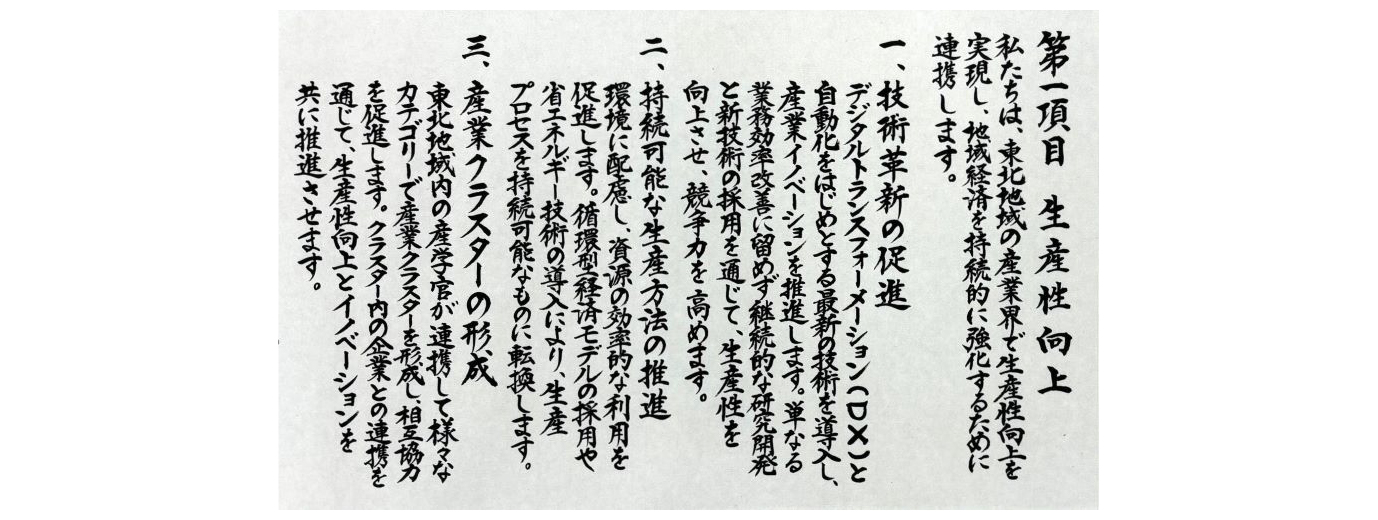 第一項目 生産性向上
私たちは、東北地域の産業界で生産性向上を
実現し、地域経済を持続的に強化するために
連携します。
一、技術革新の促進
デジタルトランスフォーメーション(DX)と
自動化をはじめとする最新の技術を導入し、
産業イノベーションを推進します。単なる
業務効率改善に留めず継続的な研究開発
と新技術の採用を通じて、生産性を
向上させ、競争力を高めます。
二、持続可能な生産方法の推進
環境に配慮し、資源の効率的な利用を
促進します。循環型経済モデルの採用や
省エネルギー技術の導入により、生産
プロセスを持続可能なものに転換します。
三、産業クラスターの形成
東北地域内の産学官が連携して様々な
カテゴリーで産業クラスターを形成し、相互協力
を促進します。クラスター内の企業との連携を
通じて、生産性向上とイノベーションを
共に推進させます。